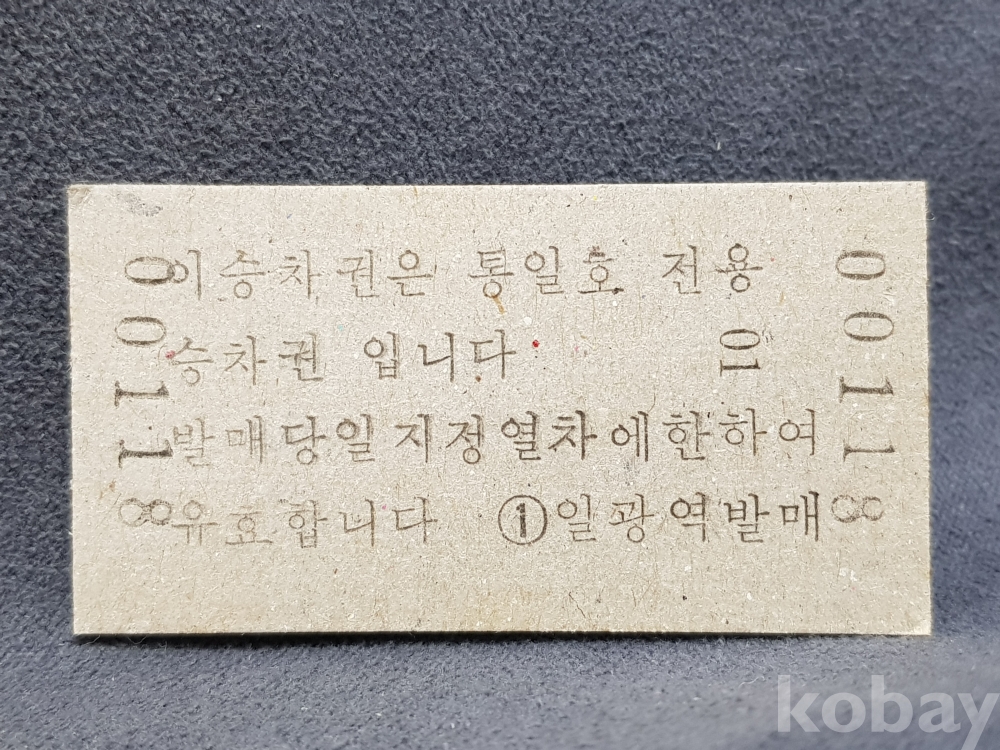 이승차권은 통일호 전용
승차권 입니다 01
발매당일 지정열차에한하여
유효합니다 ①일광역발매
00118
00118
kobay